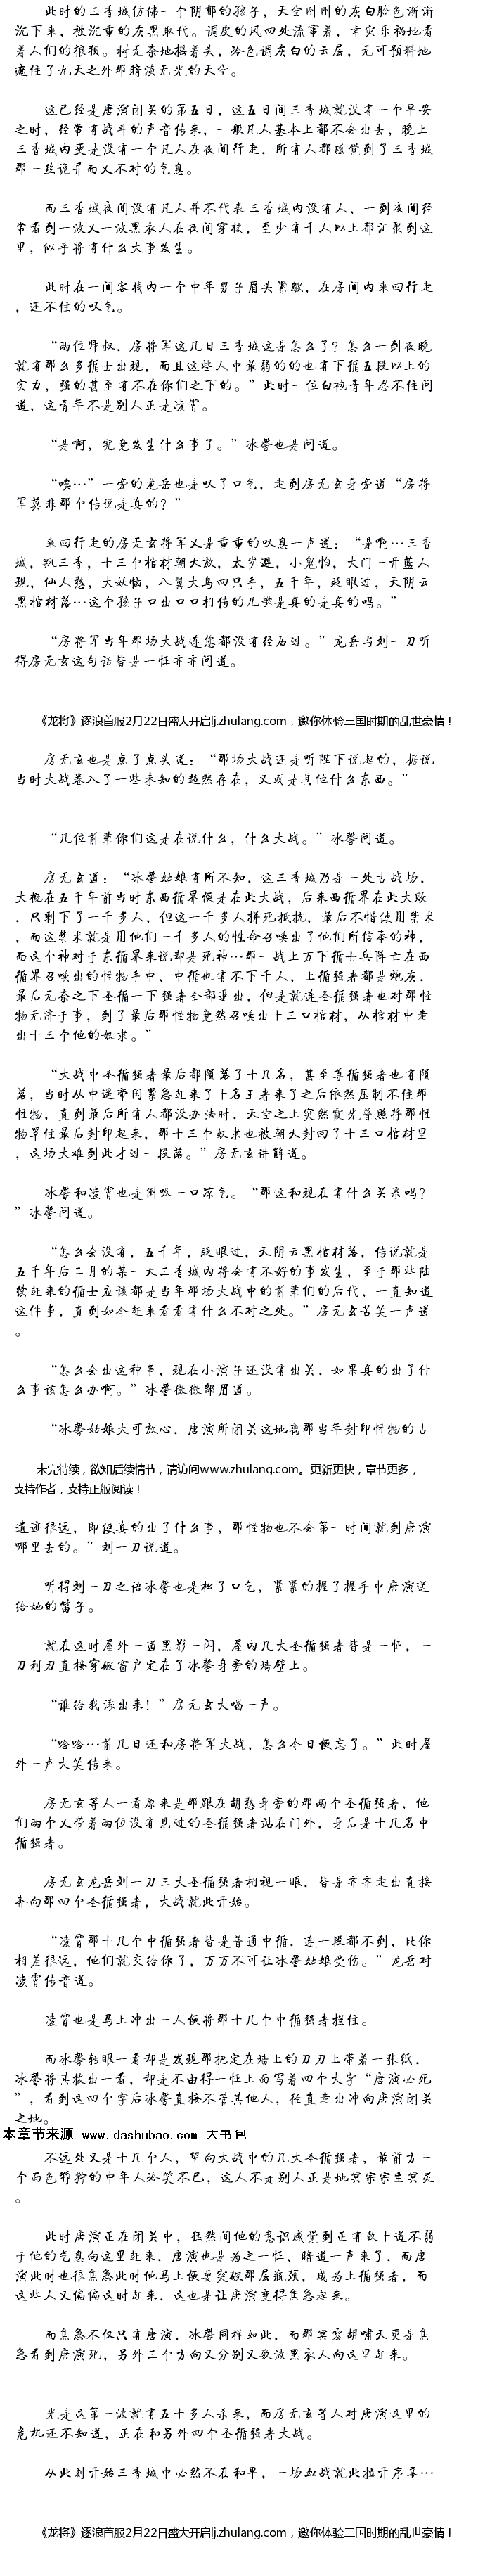 此时的三香城仿佛一个阴郁的孩子，天空刚刚的灰白脸色渐渐
沉下来，被沉重的灰黑取代。调皮的风四处流窜着，幸灾乐祸地看
着人们的狼狈。树无奈地摇着头，冷色调灰白的云层，无可预料地
遮住了九天之外那暗淡无光的天空。
这已经是唐演闭关的第五日，这五日间三香城就没有一个平安
之时，经常有战斗的声音传来，一般凡人基本上都不会出去，晚上
三香城内更是没有一个凡人在夜间行走，所有人都感觉到了三香城
那一丝诡异而又不对的气息。
而三香城夜间没有凡人并不代表三香城内没有人，一到夜间经
常看到一波又一波黑衣人在夜间穿梭，至少有千人以上都汇聚到这
里，似乎将有什么大事发生。
此时在一间客栈内一个中年男子眉头紧皱，在房间内来回行走
，还不住的叹气。
“两位师叔，房将军这几日三香城这是怎么了？怎么一到夜晚
就有那么多循士出现，而且这些人中最弱的的也有下循五段以上的
实力，强的甚至有不在你们之下的。”此时一位白袍青年忍不住问
道，这青年不是别人正是凌霄。
“是啊，究竟发生什么事了。”冰馨也是问道。
“唉…”一旁的龙岳也是叹了口气，走到房无玄身旁道“房将
军莫非那个传说是真的？”
来回行走的房无玄将军又是重重的叹息一声道：“是啊…三香
城，飘三香，十三个棺材朝天放，太岁避，小鬼怕，大门一开蓝人
现，仙人愁，大妖恼，八翼大鸟四只手，五千年，眨眼过，天阴云
黑棺材落…这个孩子口出口口相传的儿歌是真的是真的吗。”
“房将军当年那场大战连您都没有经历过。”龙岳与刘一刀听
得房无玄这句话皆是一怔齐齐问道。
《龙将》逐浪首服2月22日盛大开启lj.zhulang.com，邀你体验三国时期的乱世豪情！
房无玄也是点了点头道：“那场大战还是听陛下说起的，据说
当时大战卷入了一些未知的超然存在，又或是其他什么东西。”
“几位前辈你们这是在说什么，什么大战。”冰馨问道。
房无玄道：“冰馨姑娘有所不知，这三香城乃是一处古战场，
大概在五千年前当时东西循界便是在此大战，后来西循界在此大败
，只剩下了一千多人，但这一千多人拼死抵抗，最后不惜使用禁术
，而这禁术就是用他们一千多人的性命召唤出了他们所信奉的神，
而这个神对于东循界来说却是死神…那一战上万下循士兵阵亡在西
循界召唤出的怪物手中，中循也有不下千人，上循强者都是炮灰，
最后无奈之下圣循一下强者全部退出，但是就连圣循强者也对那怪
物无济于事，到了最后那怪物竟然召唤出十三口棺材，从棺材中走
出十三个他的奴隶。”
“大战中圣循强者最后都陨落了十几名，甚至尊循强者也有陨
落，当时从中遥帝国紧急赶来了十名王者来了之后依然压制不住那
怪物，直到最后所有人都没办法时，天空之上突然霞光普照将那怪
物罩住最后封印起来，那十三个奴隶也被朝天封回了十三口棺材里
，这场大难到此才过一段落。”房无玄讲解道。
冰馨和凌霄也是倒吸一口凉气。“那这和现在有什么关系吗？
”冰馨问道。
“怎么会没有，五千年，眨眼过，天阴云黑棺材落，传说就是
五千年后二月的某一天三香城内将会有不好的事发生，至于那些陆
续赶来的循士应该都是当年那场大战中的前辈们的后代，一直知道
这件事，直到如今赶来看看有什么不对之处。”房无玄苦笑一声道
。
“怎么会出这种事，现在小演子还没有出关，如果真的出了什
么事该怎么办啊。”冰馨微微皱眉道。
“冰馨姑娘大可放心，唐演所闭关这地离那当年封印怪物的古
未完待续，欲知后续情节，请访问www.zhulang.com。更新更快，章节更多，
支持作者，支持正版阅读！
遗迹很远，即使真的出了什么事，那怪物也不会第一时间就到唐演
哪里去的。”刘一刀说道。
听得刘一刀之语冰馨也是松了口气，紧紧的握了握手中唐演送
给她的笛子。
就在这时屋外一道黑影一闪，屋内几大圣循强者皆是一怔，一
刀利刃直接穿破窗户定在了冰馨身旁的墙壁上。
“谁给我滚出来！”房无玄大喝一声。
“哈哈…前几日还和房将军大战，怎么今日便忘了。”此时屋
外一声大笑传来。
房无玄等人一看原来是那跟在胡愁身旁的那两个圣循强者，他
们两个又带着两位没有见过的圣循强者站在门外，身后是十几名中
循强者。
房无玄龙岳刘一刀三大圣循强者相视一眼，皆是齐齐走出直接
奔向那四个圣循强者，大战就此开始。
“凌霄那十几个中循强者皆是普通中循，连一段都不到，比你
相差很远，他们就交给你了，万万不可让冰馨姑娘受伤。”龙岳对
凌霄传音道。
凌霄也是马上冲出一人便将那十几个中循强者拦住。
而冰馨转眼一看却是发现那把定在墙上的刀刃上带着一张纸，
冰馨将其拔出一看，却是不由得一怔上面写着四个大字“唐演必死
”，看到这四个字后冰馨直接不管其他人，径直走出冲向唐演闭关
之地。
本章节来源 www.dashubao.com 大书包
不远处又是十几个人，望向大战中的几大圣循强者，最前方一
个面色狰狞的中年人冷笑不已，这人不是别人正是地冥宗宗主冥灵
。
此时唐演正在闭关中，猛然间他的意识感觉到正有数十道不弱
于他的气息向这里赶来，唐演也是为之一怔，暗道一声来了，而唐
演此时也很焦急此时他马上便要突破那层瓶颈，成为上循强者，而
这些人又偏偏这时赶来，这也是让唐演变得焦急起来。
而焦急不仅只有唐演，冰馨同样如此，而那冥零胡啸天更是焦
急看到唐演死，另外三个方向又分别又数波黑衣人向这里赶来。
光是这第一波就有五十多人杀来，而房无玄等人对唐演这里的
危机还不知道，正在和另外四个圣循强者大战。
从此刻开始三香城中必然不在和平，一场血战就此拉开序幕…
《龙将》逐浪首服2月22日盛大开启lj.zhulang.com，邀你体验三国时期的乱世豪情！